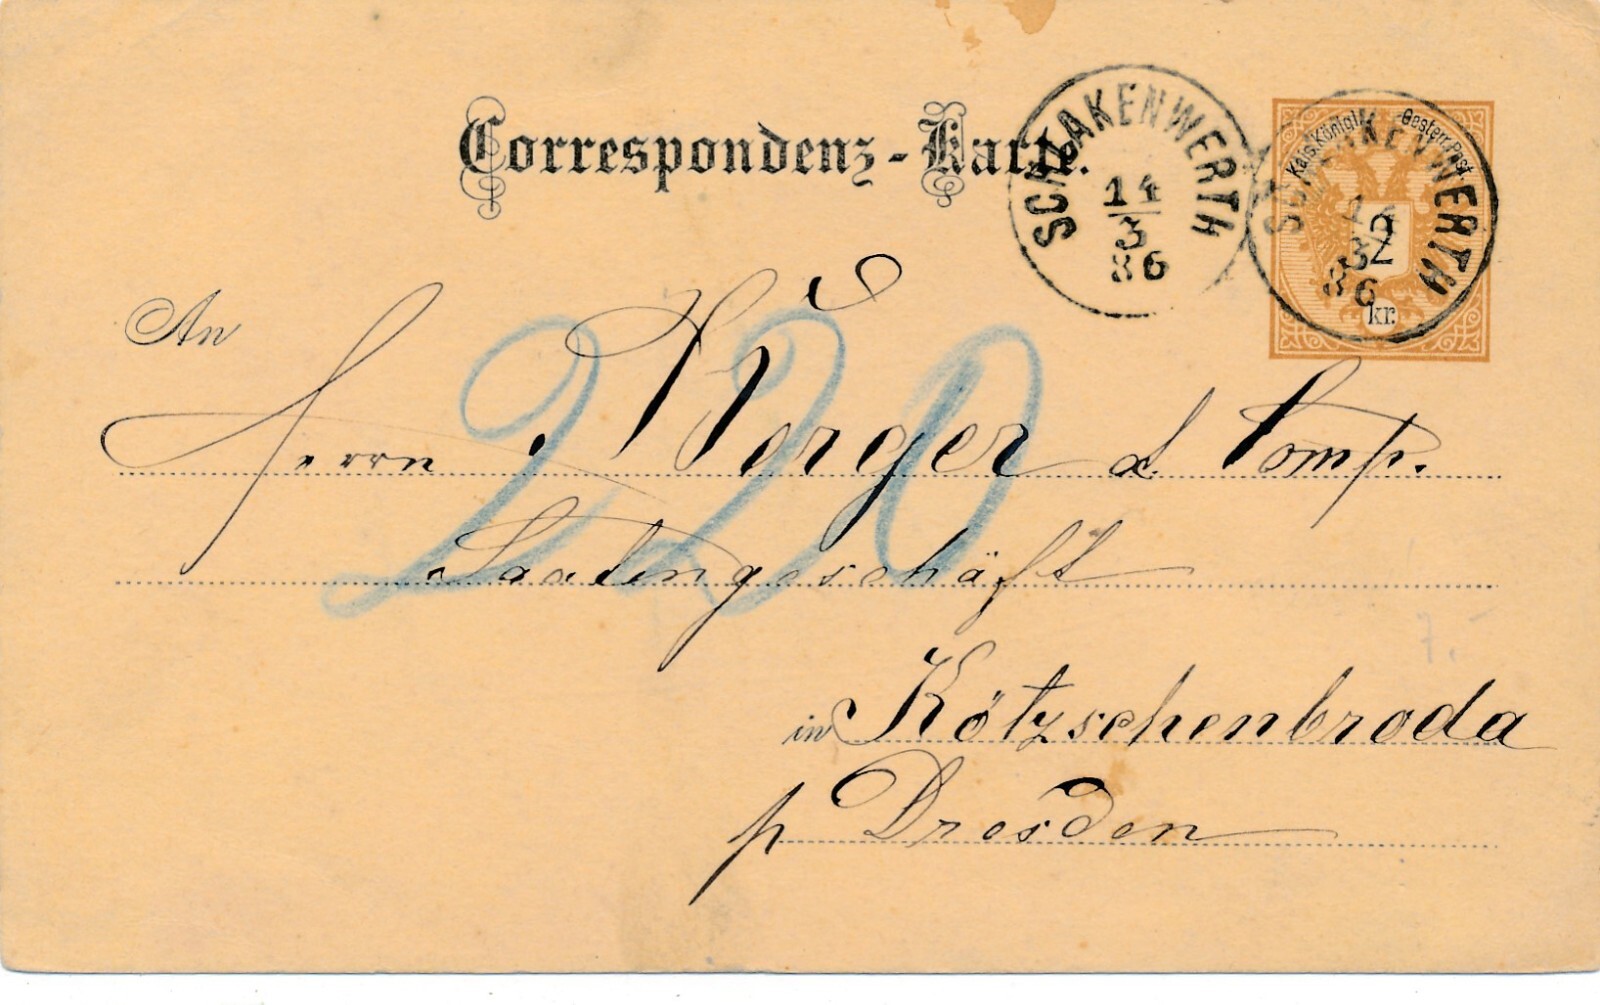 Correspondenz-Karte.
SCHLAKENWERTH
14
3
86
Kais. Königl. Oesterr. Post.
2
kr.
SCHLAKENWERTH
14
3
86
An
Herrn Körger & Comp.
220
Saatengeschäft
7.-
in Kötzschenbroda
p Dresden